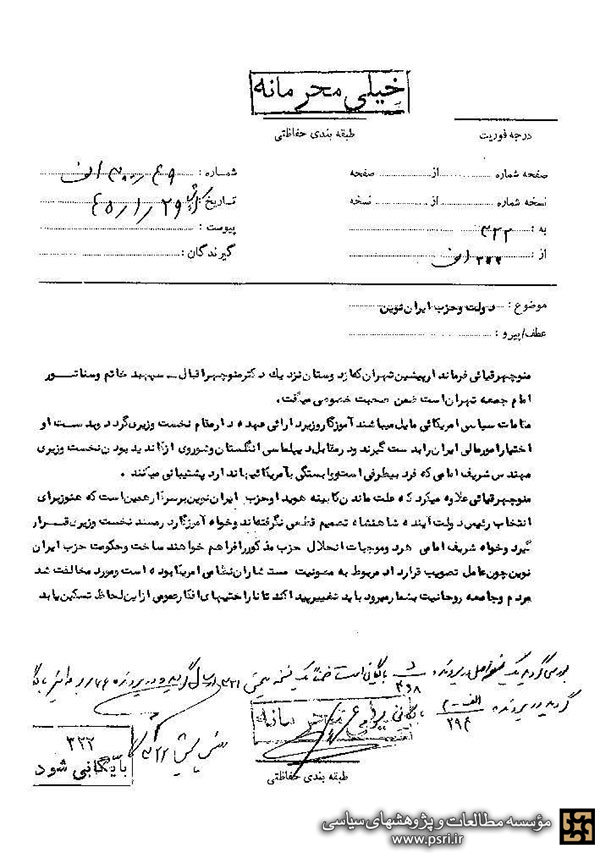 خیلی محرمانه
درجه فوریت
طبقه بندی حفاظتی
صفحه شماره : از صفحه
شماره :
نسخه شماره : از نسخه
تاریخ : ۴۵/۱/۲۹
به : ۳۲۲
پیوست :
از :
گیرندگان :
موضوع : دولت و حزب ایران نوین
عطف/پیرو :
منوچهر قیائی فرماندار پیشین تهران که از دوستان نزدیك دکتر منوچهر اقبال ـ سپهبد خاتم و سناتور
امام جمعه تهران است ضمن صحبت خصوصی میگفت .
مقامات سیاسی امریکائی مایل میباشند آموزگار وزیر دارائی عهده دار مقام نخست وزیری گردد و بدست او
اختیار امور مالی ایران را بدست گیرند و در مقابل دیپلماسی انگلستان و شوروی از کاندید بودن نخست وزیری
مهندس شریف امامی که فرد بیطرفی است و وابستگی بآمریکائیها ندارد پشتیبانی میکنند .
منوچهر قیائی علاوه میکرد که علت ماندن کابینه هویدا و حزب ایران نوین بر سر کار همین است که هنوز برای
انتخاب رئیس دولت آینده شاهنشاه تصمیم قطعی نگرفته‌اند و خواه آموزگار بمسند نخست وزیری قرار
گیرد و خواه شریف امامی هر دو موجبات انحلال حزب مذکور را فراهم خواهند ساخت و حکومت حزب ایران
نوین چون عامل تصویب قرارداد مربوط به مصونیت مستشاران نظامی امریکا بوده است و مورد مخالفت شدید
مردم و جامعه روحانیت بشمار میرود باید تغییر پیدا کند تا ناراحتیهای افکار عمومی از این لحاظ تسکین یابد
بررسی گردید یک نسخه اصل در پرونده
گردید در پرونده الف-۲۰ / ۲۹۴
خیلی محرمانه
۳۲۲
بایگانی شود
طبقه بندی حفاظتی
مؤسسه مطالعات و پژوهشهای سیاسی
www.psri.ir